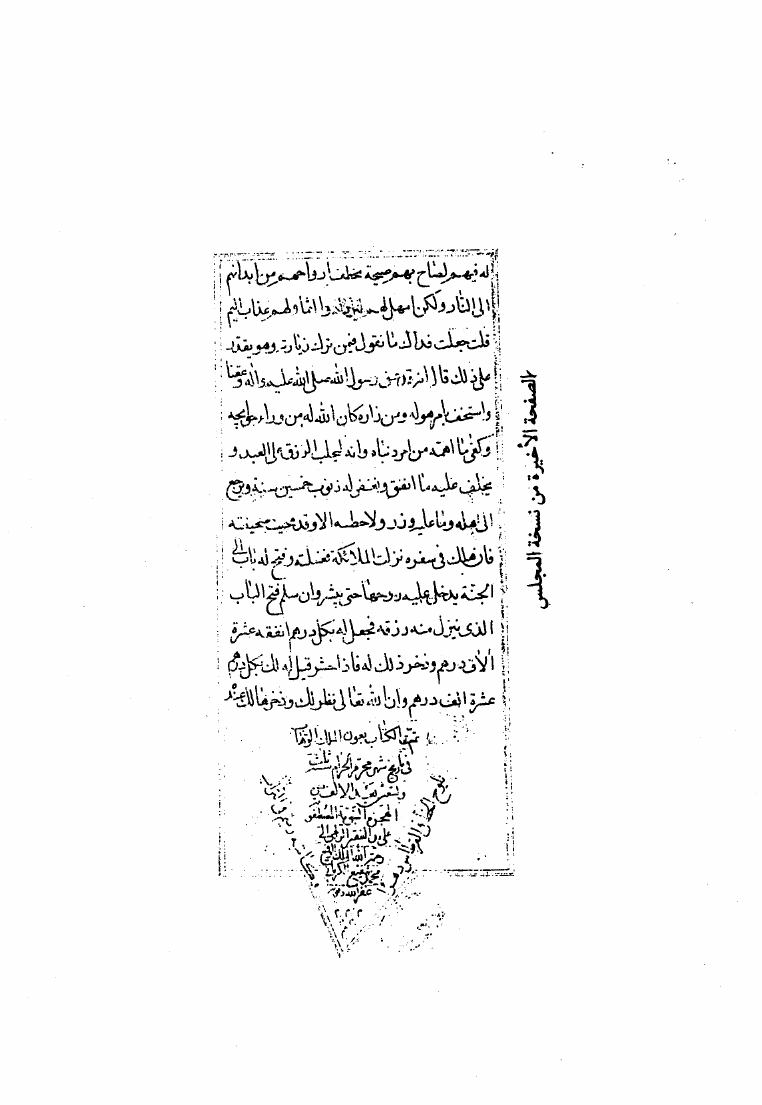 له فيهم لصاح بهم صيحة يخطف ارواحهم من ابدانهم
الى النار ولكن امهل لهم ليزدادوا اثما ولهم عذاب اليم
قلت جعلت فداك ما تقول فيمن ترك زيارته وهو يقدر
على ذلك قال انه قد عق رسول الله صلى الله عليه واله وعقنا
واستخف بامر هوله ومن زاره كان الله له من وراء حوايجه
وكفى ما اهمه من امر دنياه وانه ليجلب الرزق على العبد و
يخلف عليه ما انفق ويغفر له ذنوب خمسين سنة ويرجع
الى اهله وما عليه وزر ولا خطيه الا وقد محيت من صحيفته
فان هلك في سفره نزلت الملائكة فغسلته وفتح له باب الى
الجنة يدخل عليه روحها حتى ينشر وان سلم فتح الباب
الذى ينزل منه رزقه فجعل له بكل درهم انفقه عشرة
الاف درهم وذخر ذلك له فاذا حشر قيل له لك بكل درهم
عشرة الف درهم وان الله تعالى نظر لك وذخرها لك عنده
تم الكتاب بعون الملك الوهاب
فى تاريخ شهر محرم الحرام
بعد الالف من
الهجرة النبوية المصطفوية
على يد الفقير
عفر الله ذنوبه
يلوح الخط فى القرطاس دهرا
وكاتبه رميم فى التراب
الصفحة الأخيرة من نسخة المجلس